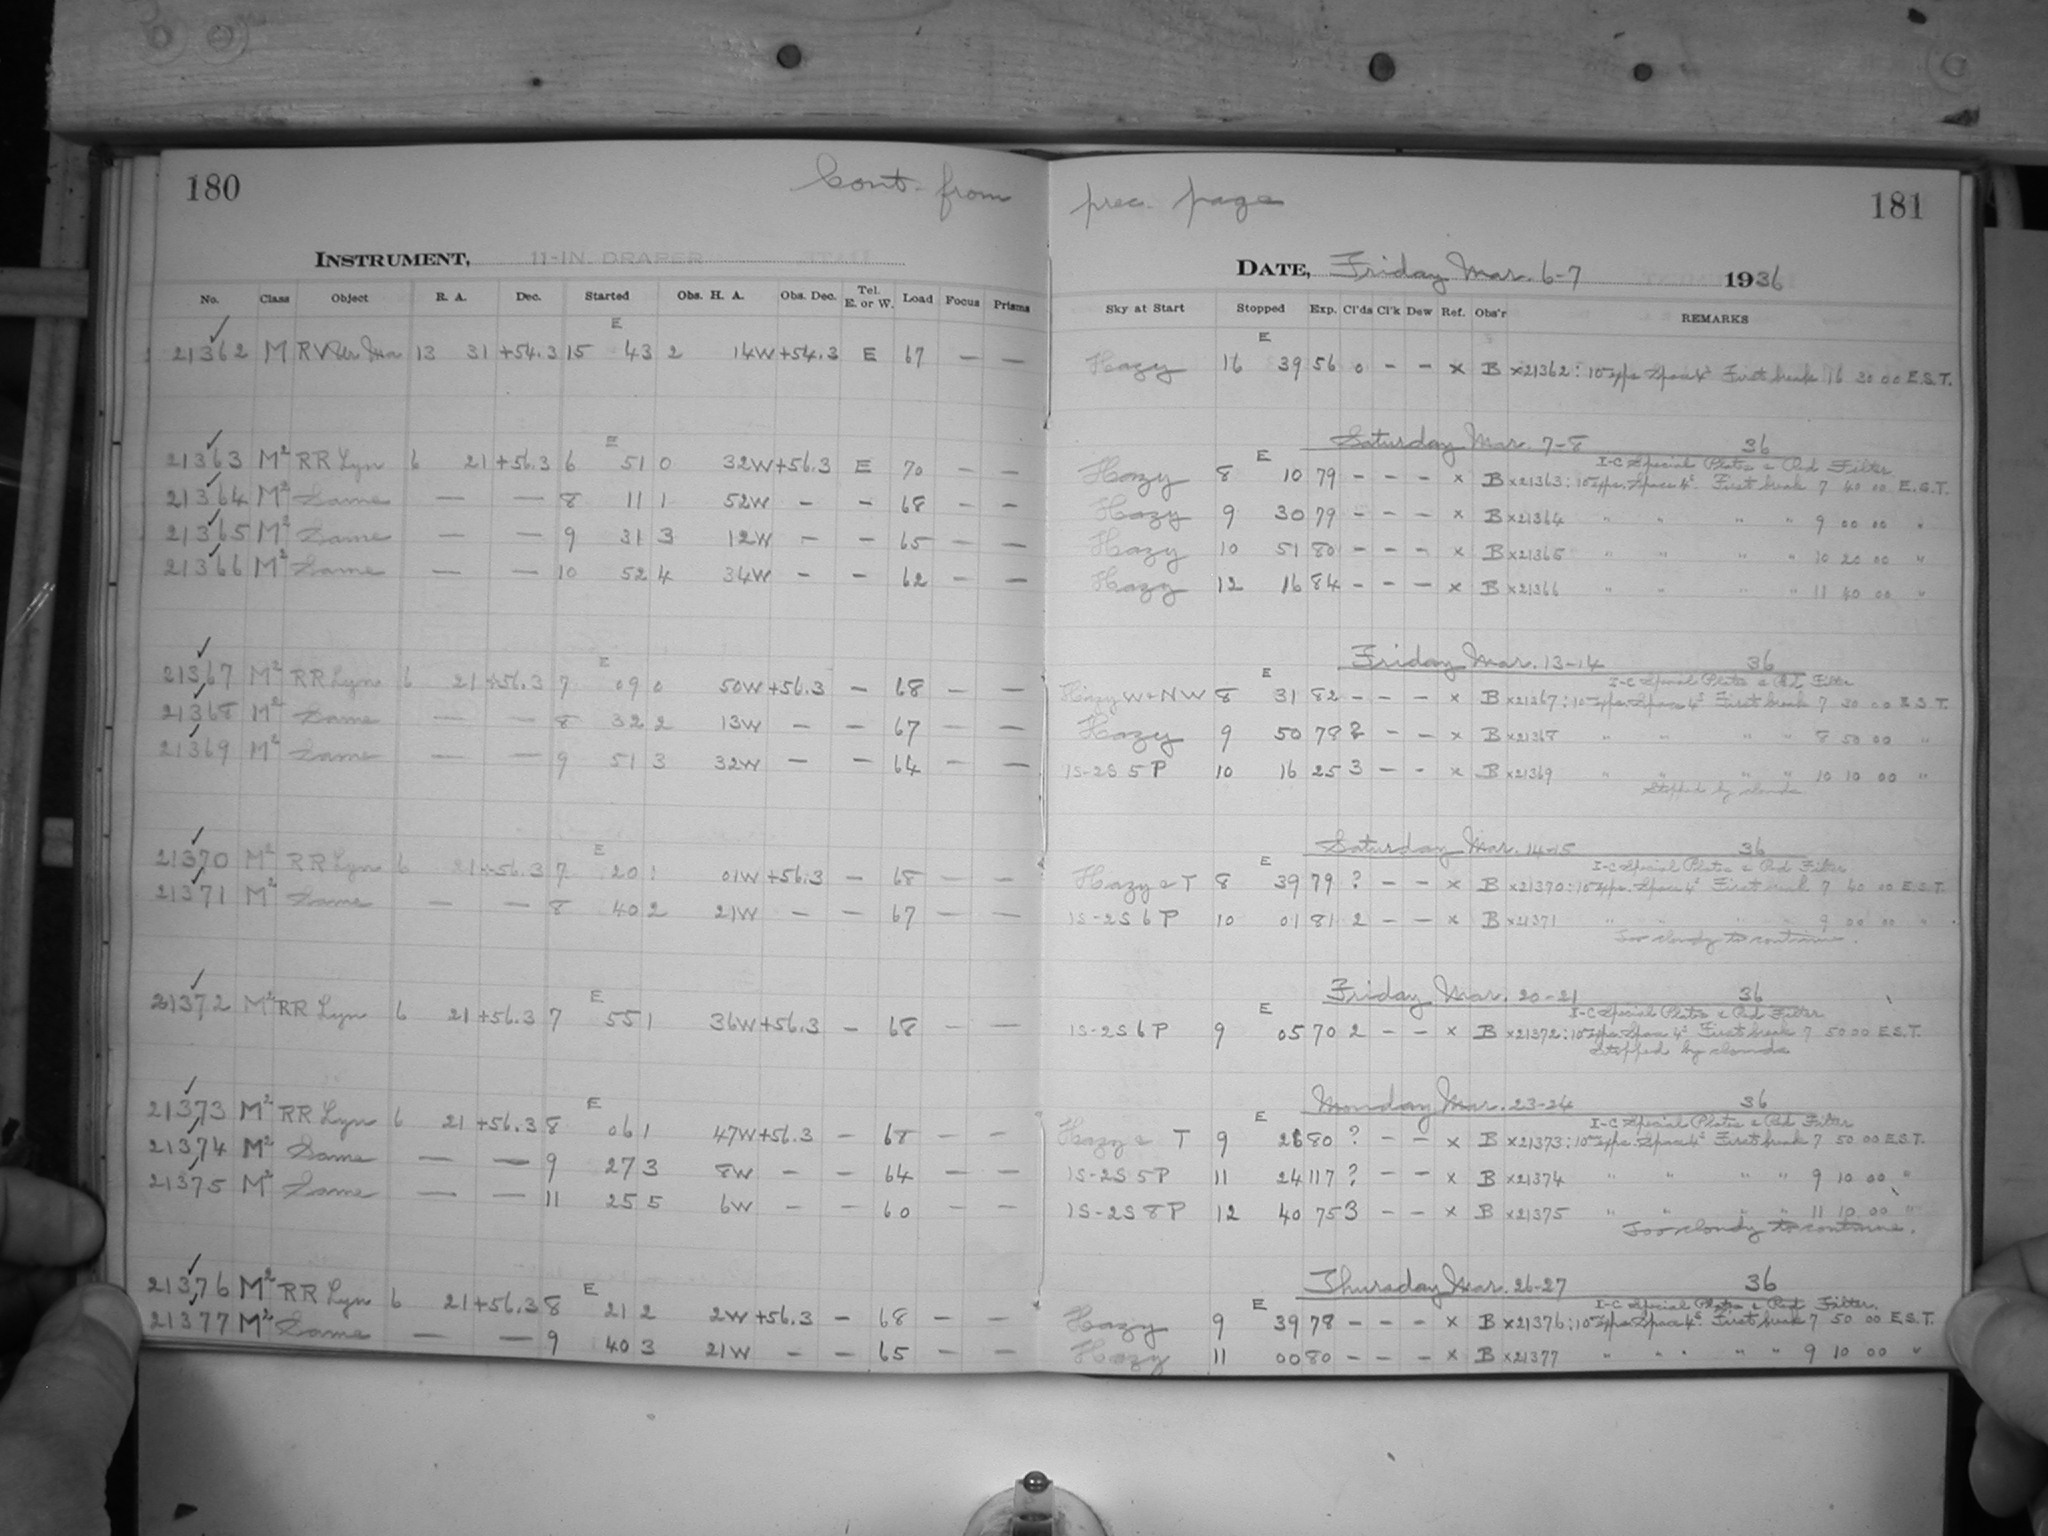 180 Cont. from prec. page 181
INSTRUMENT, 11-IN. DRAPER DATE, Friday Mar. 6-7 1936
No. Class Object R. A. Dec. Started Obs. H. A. Obs. Dec. Tel. E. or W. Load Focus Prisms Sky at Start Stopped Exp. Cl'ds Cl'k Dew Ref. Obs'r REMARKS
E E
21362 M RV Ur Ma 13 31 +54.3 15 43 2 14W +54.3 E 67 — — Hazy 16 39 56 0 - - x B x21362: 10 exps. Space 4ˢ First break 16 30 00 E.S.T.
Saturday Mar. 7-8 36
E E I-C Special Plates & Red Filter
21363 M² RR Lyn 6 21 +56.3 6 51 0 32W +56.3 E 70 - - Hazy 8 10 79 - - - x B x21363: 10 exps. Space 4ˢ. First break 7 40 00 E.S.T.
21364 M² Same — — 8 11 1 52W - - 68 - - Hazy 9 30 79 - - - x B x21364 " " " " 9 00 00 "
21365 M² Same — — 9 31 3 12W - - 65 - - Hazy 10 51 80 - - - x B x21365 " " " " 10 20 00 "
21366 M² Same — — 10 52 4 34W - - 62 - - Hazy 12 16 84 - - - x B x21366 " " " " 11 40 00 "
Friday Mar. 13-14 36
E E I-C Special Plates & Red Filter
21367 M² RR Lyn 6 21 +56.3 7 09 0 50W +56.3 - 68 - - Hazy W+NW 8 31 82 - - - x B x21367: 10 exps. Space 4ˢ First break 7 30 00 E.S.T.
21368 M² Same — — 8 32 2 13W - - 67 - - Hazy 9 50 78 ? - - x B x21368 " " " " 8 50 00 "
21369 M² Same — — 9 51 3 32W - - 64 - - 1S-2S 5P 10 16 25 3 - - x B x21369 " " " " 10 10 00 "
Stopped by clouds
Saturday Mar. 14-15 36
E E I-C Special Plates & Red Filter
21370 M² RR Lyn 6 21 +56.3 7 20 1 01W +56.3 - 68 - - Hazy & T 8 39 79 ? - - x B x21370: 10 exps. Space 4ˢ First break 7 40 00 E.S.T.
21371 M² Same — — 8 40 2 21W - - 67 - - 1S-2S 6P 10 01 81 2 - - x B x21371 " " " " 9 00 00 "
Too cloudy to continue.
Friday Mar. 20-21 36
E E I-C Special Plates & Red Filter
21372 M² RR Lyn 6 21 +56.3 7 55 1 36W +56.3 - 68 - - 1S-2S 6P 9 05 70 2 - - x B x21372: 10 exps. Space 4ˢ First break 7 50 00 E.S.T.
Stopped by clouds
Monday Mar. 23-24 36
E E I-C Special Plates & Red Filter
21373 M² RR Lyn 6 21 +56.3 8 06 1 47W +56.3 - 68 - - Hazy & T 9 26 80 ? - - x B x21373: 10 exps. Space 4ˢ First break 7 50 00 E.S.T.
21374 M² Same — — 9 27 3 8W - - 64 - - 1S-2S 5P 11 24 117 ? - - x B x21374 " " " " 9 10 00 "
21375 M² Same — — 11 25 5 6W - - 60 - - 1S-2S 8P 12 40 75 3 - - x B x21375 " " " " 11 10 00 "
Too cloudy to continue.
Thursday Mar. 26-27 36
E E I-C Special Plates & Red Filter.
21376 M² RR Lyn 6 21 +56.3 8 21 2 2W +56.3 - 68 - - Hazy 9 39 78 - - - x B x21376: 10 exps. Space 4ˢ. First break 7 50 00 E.S.T.
21377 M² Same — — 9 40 3 21W - - 65 - - Hazy 11 00 80 - - - x B x21377 " " " " 9 10 00 "